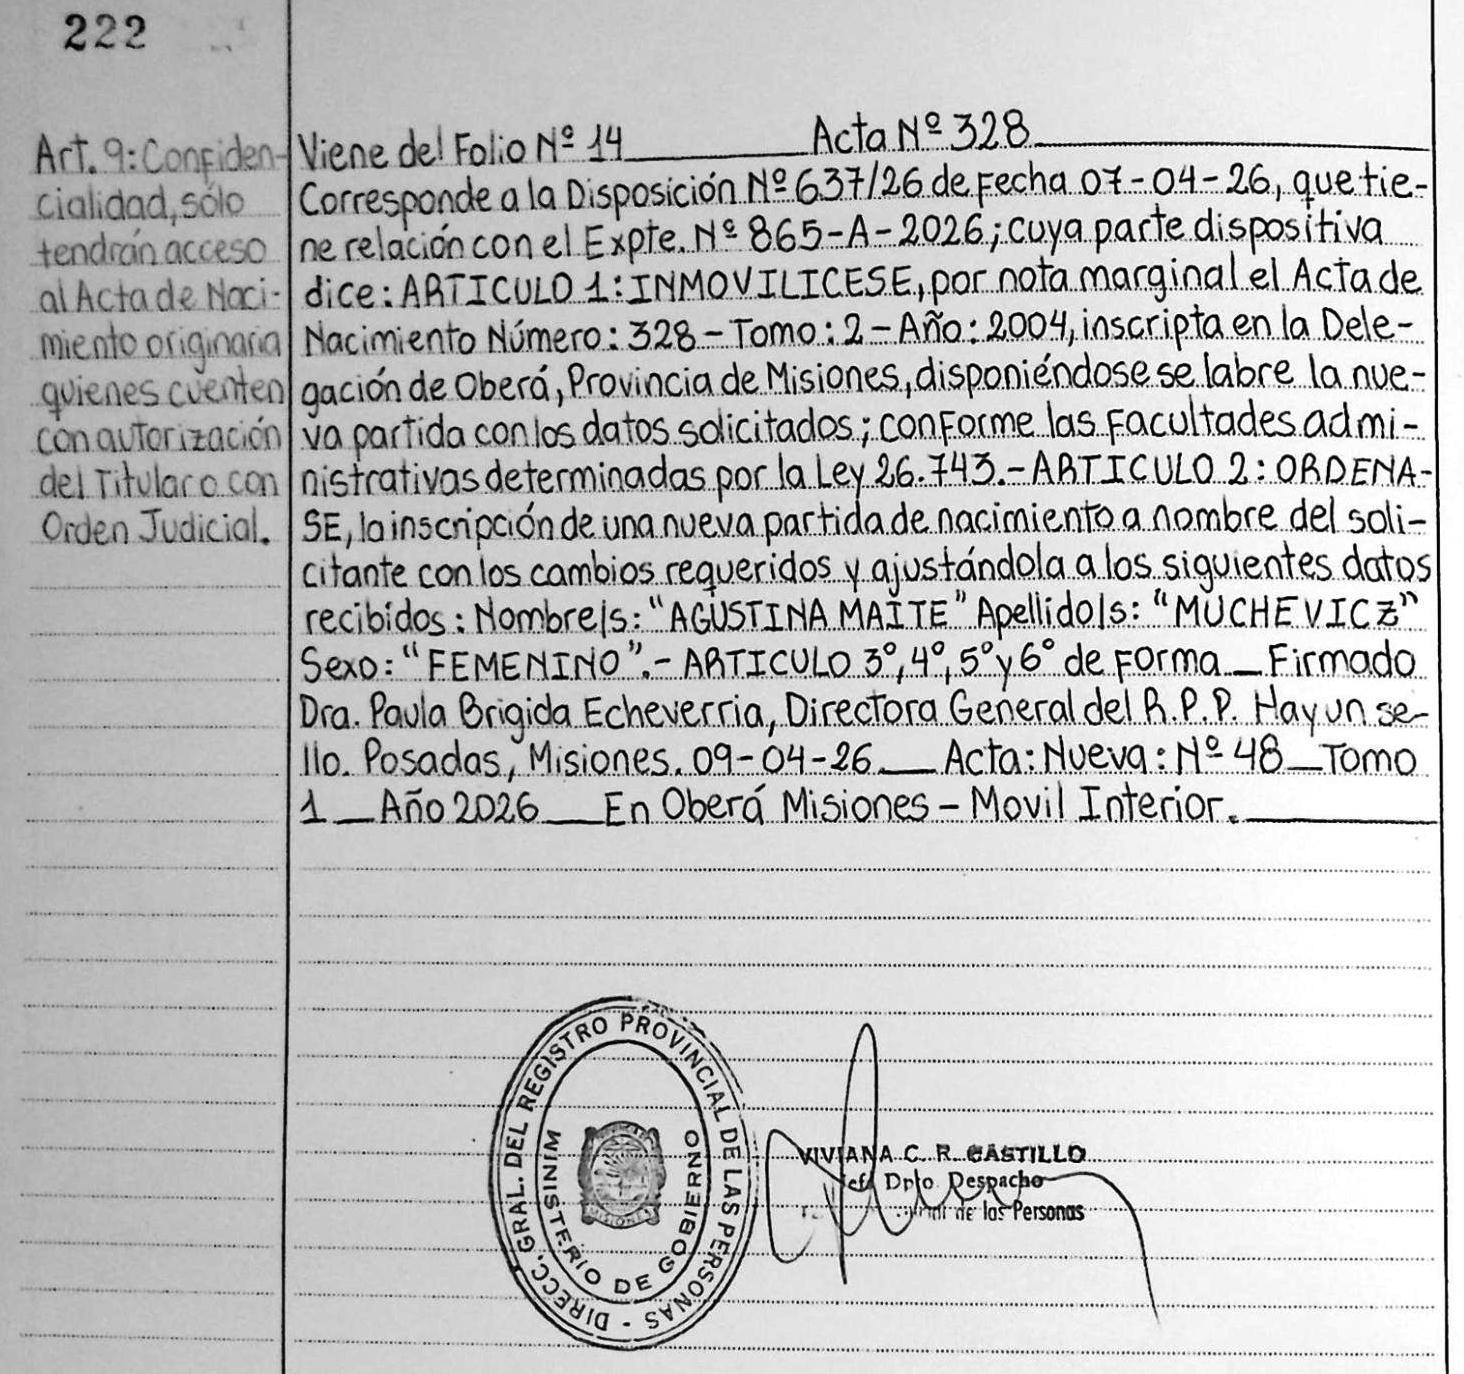 222
Art. 9: Confiden-
cialidad, sólo
tendrán acceso
al Acta de Naci-
miento originaria
quienes cuenten
con autorización
del Titular o con
Orden Judicial.
Viene del Folio Nº 14 Acta Nº 328
Corresponde a la Disposición Nº 637/26 de Fecha 07-04-26, que tie-
ne relación con el Expte. Nº 865-A-2026; cuya parte dispositiva
dice: ARTICULO 1: INMOVILICESE, por nota marginal el Acta de
Nacimiento Número: 328 - Tomo: 2 - Año: 2004, inscripta en la Dele-
gación de Oberá, Provincia de Misiones, disponiéndose se labre la nue-
va partida con los datos solicitados; conforme las Facultades admi-
nistrativas determinadas por la Ley 26.743.- ARTICULO 2: ORDENA-
SE, la inscripción de una nueva partida de nacimiento a nombre del soli-
citante con los cambios requeridos y ajustándola a los siguientes datos
recibidos: Nombre/s: "AGUSTINA MAITE" Apellido/s: "MUCHEVICZ"
Sexo: "FEMENINO".- ARTICULO 3º, 4º, 5º y 6º de Forma _ Firmado
Dra. Paula Brigida Echeverria, Directora General del R.P.P. Hay un se-
llo. Posadas, Misiones. 09-04-26 __ Acta: Nueva: Nº 48 _ Tomo
1 __ Año 2026 __ En Oberá Misiones - Movil Interior.
DIRECC. GRAL. DEL REGISTRO PROVINCIAL DE LAS PERSONAS -
MINISTERIO DE GOBIERNO
MISIONES
VIVIANA C. R. CASTILLO
Jefe Dpto Despacho
de las Personas